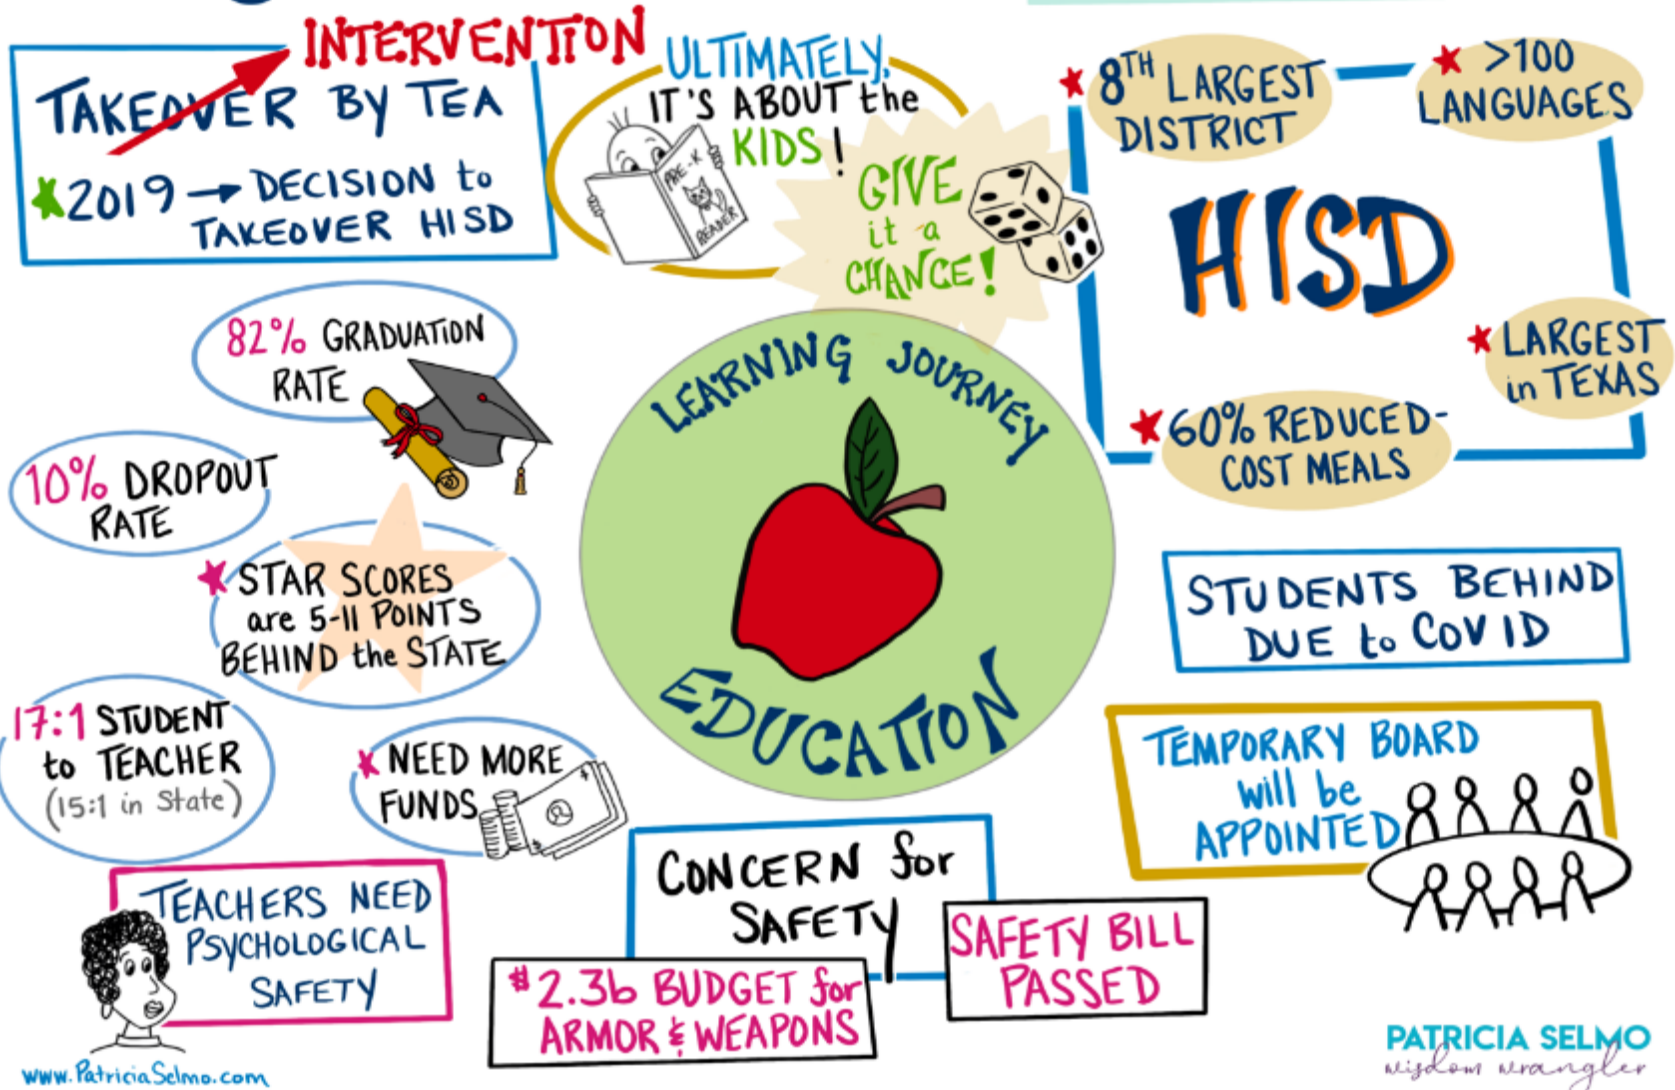 INTERVENTION
TAKEOVER BY TEA
2019 → DECISION to
TAKEOVER HISD
ULTIMATELY,
IT'S ABOUT the
KIDS!
PRE-K
READER
GIVE
it a
CHANCE!
8TH LARGEST
DISTRICT
>100
LANGUAGES
HISD
LARGEST
in TEXAS
60% REDUCED-
COST MEALS
82% GRADUATION
RATE
10% DROPOUT
RATE
STAR SCORES
are 5-11 POINTS
BEHIND the STATE
17:1 STUDENT
to TEACHER
(15:1 in State)
NEED MORE
FUNDS
LEARNING JOURNEY
EDUCATION
STUDENTS BEHIND
DUE to COVID
TEMPORARY BOARD
will be
APPOINTED
TEACHERS NEED
PSYCHOLOGICAL
SAFETY
CONCERN for
SAFETY
$2.3b BUDGET for
ARMOR & WEAPONS
SAFETY BILL
PASSED
www.PatriciaSelmo.com
PATRICIA SELMO
wisdom wrangler